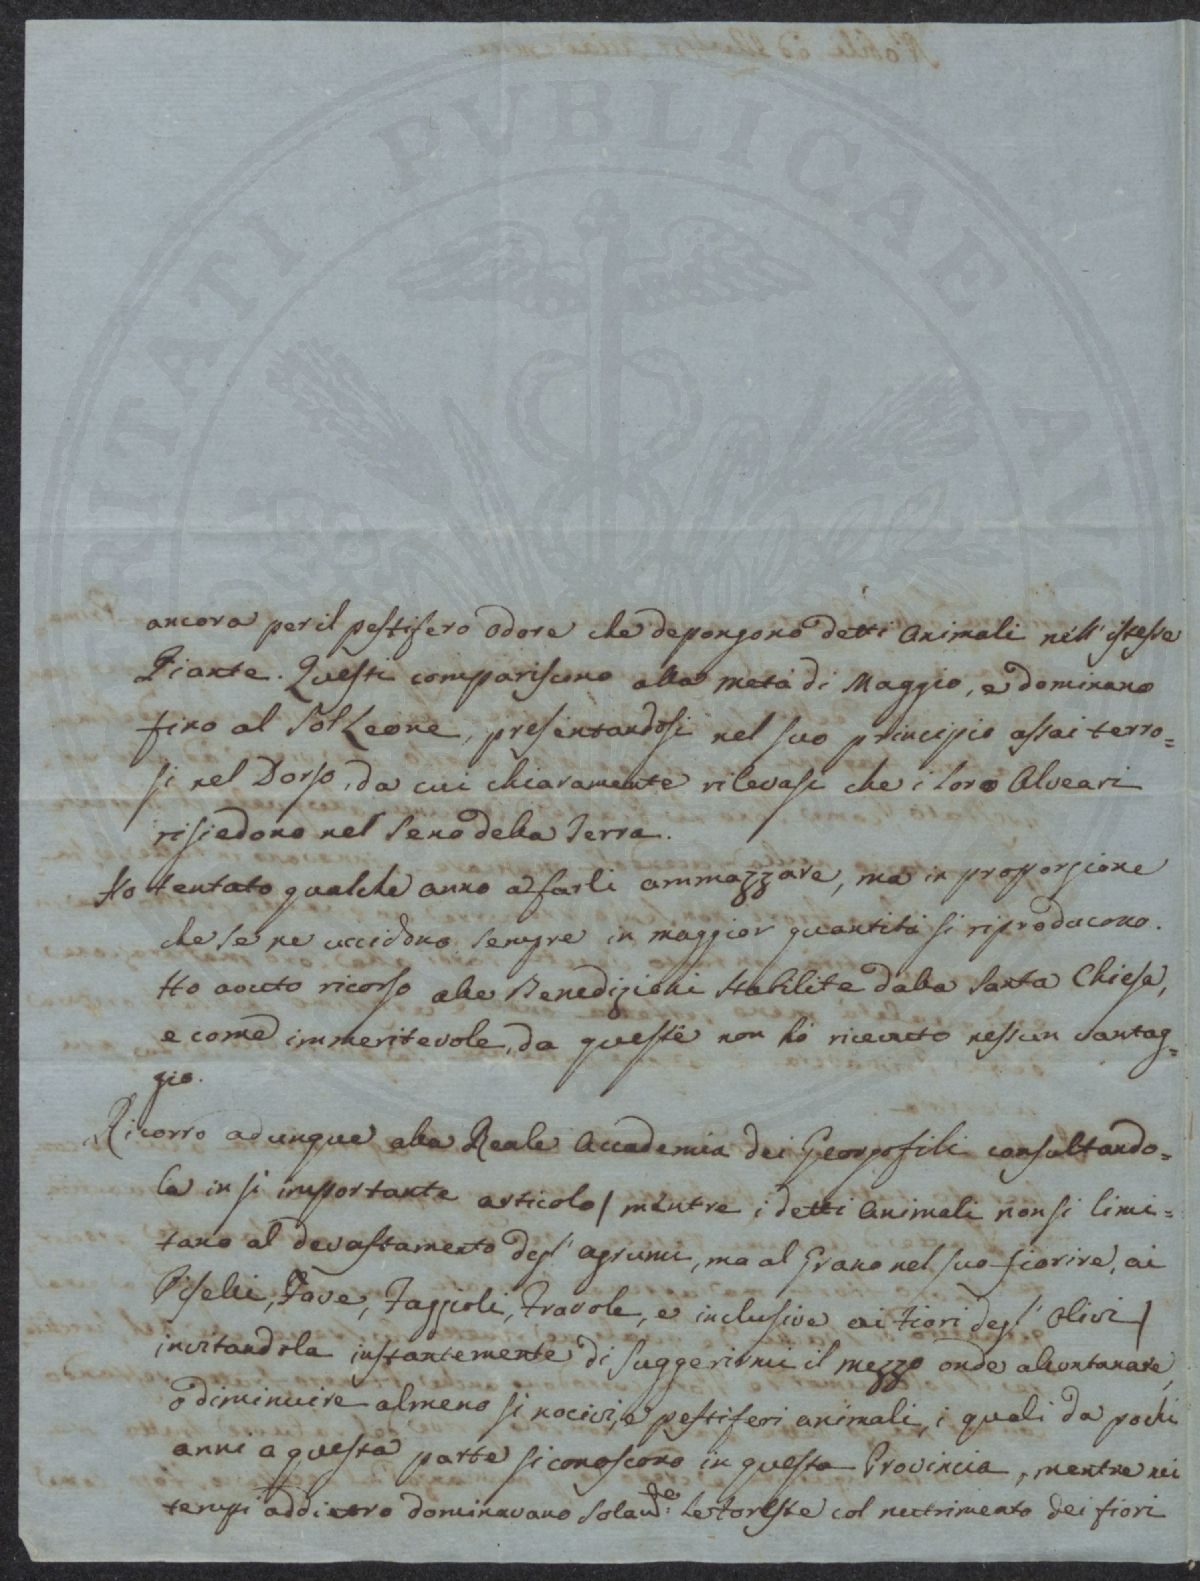 PVBLICAE
ancora per il pestifero odore che depongono detti Animali nell' istesse
Piante. Questi compariscono alla metà di Maggio, e dominano
fino al Sol Leone, presentandosi nel suo principio assai terro=
si nel Dorso, da cui chiaramente rilevasi che i loro Alveari
risiedono nel Seno della Terra.
Ho tentato qualche anno a farli ammazzare, ma in proporzione
che se ne uccidono sempre in maggior quantità si riproducono.
Ho avuto ricorso alle Benedizioni stabilite dalla Santa Chiesa,
e come immeritevole, da queste non hò ricevuto nessun vantag=
gio.
Ricorro adunque alla Reale Accademia dei Georgofili consultando=
la in sì importante articolo / mentre i detti Animali non si limi=
tano al devastamento degl' agrumi, ma al Grano nel suo fiorire, ai
Piselli, Fave, Faggioli, Fravole, e inclusive ai Fiori degl' Olivi /
invitandola instantemente di suggerirmi il mezzo onde allontanare,
o diminuire almeno sì nocivi, e pestiferi animali, i quali da pochi
anni a questa parte si conoscono in questa Provincia, mentre nei
tempi addietro dominavano solam:te le col nutrimento dei fiori